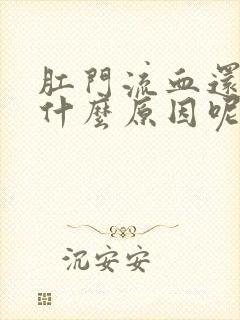 肛門流血還
什麼原因呢
沉安安